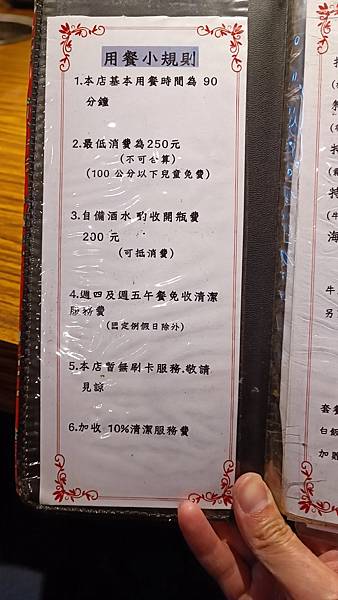 用餐小規則
1.本店基本用餐時間為 90
分鐘
2.最低消費為250元
(不可合算)
(100 公分以下兒童免費)
3.自備酒水 酌收開瓶費
200 元
(可抵消費)
4.週四及週五午餐免收清潔
服務費
(國定例假日除外)
5.本店暫無刷卡服務.敬請
見諒
6.加收 10%清潔服務費
特
特
海
牛
另
套餐
白飯
加